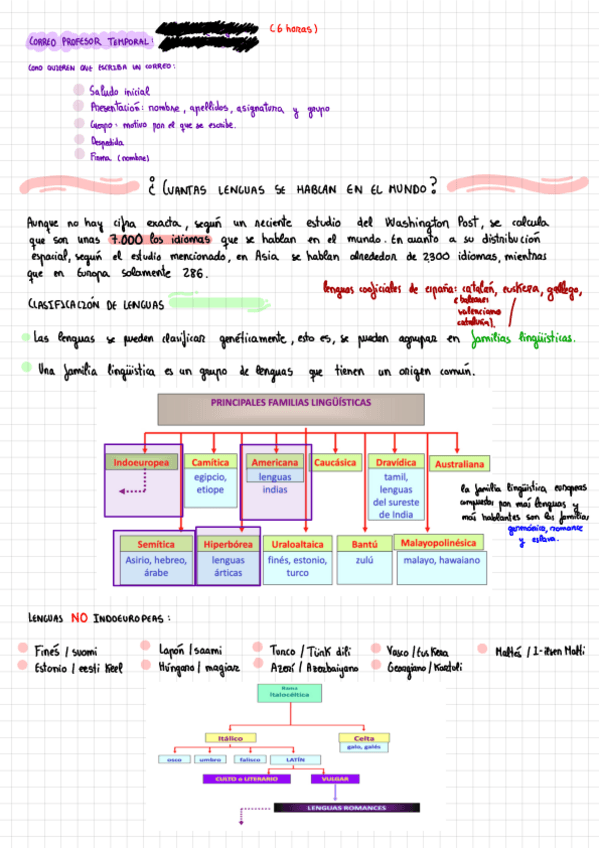 CORREO PROFESOR TEMPORAL:
(6 horas)
COMO QUIEREN QUE ESCRIBA UN CORREO:
Saludo inicial
Presentación: nombre, apellidos, asignatura y grupo
Cuerpo: motivo por el que se escribe.
Despedida
Firma (nombre)
¿CUANTAS LENGUAS SE HABLAN EN EL MUNDO?
Aunque no hay cifra exacta, según un reciente estudio del Washington Post, se calcula
que son unas 7.000 los idiomas que se hablan en el mundo. En cuanto a su distribución
espacial, según el estudio mencionado, en Asia se hablan alrededor de 2300 idiomas, mientras
que en Europa solamente 286.
lenguas cooficiales de españa: catalán, euskera, gallego,
(baleares
valenciano
cataluña).
CLASIFICACIÓN DE LENGUAS
Las lenguas se pueden clasificar genéticamente, esto es, se pueden agrupar en familias lingüísticas.
Una familia lingüística es un grupo de lenguas que tienen un origen común.
PRINCIPALES FAMILIAS LINGÜÍSTICAS
Indoeuropea
Camítica
egipcio,
etíope
Americana
lenguas
indias
Caucásica
Dravídica
tamil,
lenguas
del sureste
de India
Australiana
la familia lingüística europeas
compuestas por más lenguas y
más hablantes son las familias
germánica, romance
y eslava.
Semítica
Asirio, hebreo,
árabe
Hiperbórea
lenguas
árticas
Uraloaltaica
finés, estonio,
turco
Bantú
zulú
Malayopolinésica
malayo, hawaiano
LENGUAS NO INDOEUROPEAS:
Finés / suomi
Lapón / saami
Turco / Türk dili
Vasco / Euskera
Maltés / I-ilsen Malti
Estonio / eesti keel
Húngaro / magiar
Azerí / Azerbaiyano
Georgiano / Kartoli
Rama
Italocéltica
Itálico
Celta
galo, galés
osco
umbro
falisco
LATÍN
CULTO o LITERARIO
VULGAR
LENGUAS ROMANCES